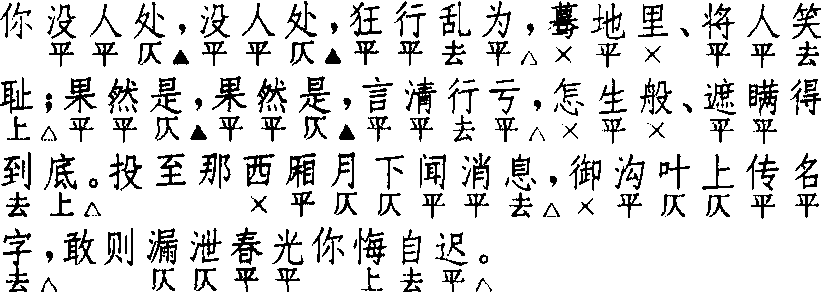 你没人处,没人处,狂行乱为,蓦地里、将人笑
平平仄▲平平仄▲平平去平×平×平平去
耻;果然是,果然是,言清行亏,怎生般、遮瞒得
上△平平仄▲平平仄▲平平去平△×平×平平
到底。投至那西厢月下闻消息,御沟叶上传名
去上△×平仄仄平平去△×平仄仄平平
字,敢则漏泄春光你悔自迟。
去△仄仄平平上去平△